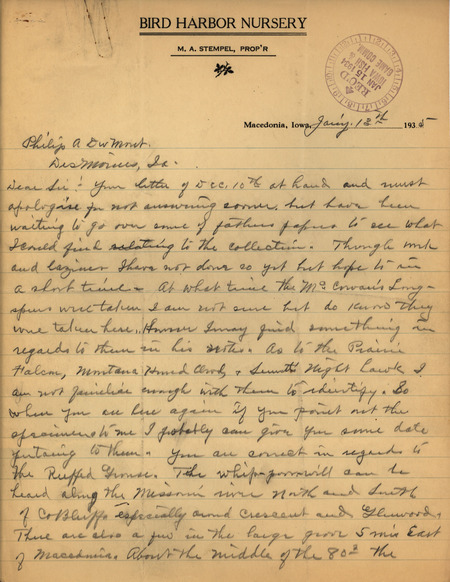 BIRD HARBOR NURSERY
M. A. STEMPEL, PROP'R
REC'D
JAN 15 1934
IOWA FISH &
GAME COMM
Macedonia, Iowa, Jan'y. 13th 1935
Philip A DuMont.
Des Moines, Ia.
Dear Sir:- Your letter of Dec. 10th at hand and must
apologise for not answering sooner, but have been
waiting to go over some of fathers papers to see what
I could find relating to the collection. Through work
and laziness I have not done so yet but hope to in
a short time. At what time the Mc Cowans Long-
spurs were taken I am not sure but do know they
were taken here. However I may find something in
regards to them in his notes. As to the Prairie
Falcon, Montana Horned Owl, & Sennett Night hawk I
am not familiar enough with them to identify. So
when you are here again if you point out the
specimens to me I probly can give you some date
pertaining to them. You are correct in regards to
the Ruffed Grouse. The whip-poor-will can be
heard along the Missouri river north and South
of Co Bluffs especially around Crescent and Glenwood.
There are also a few in the large grove 5 mis East
of Macedonia. About the middle of the 80s the